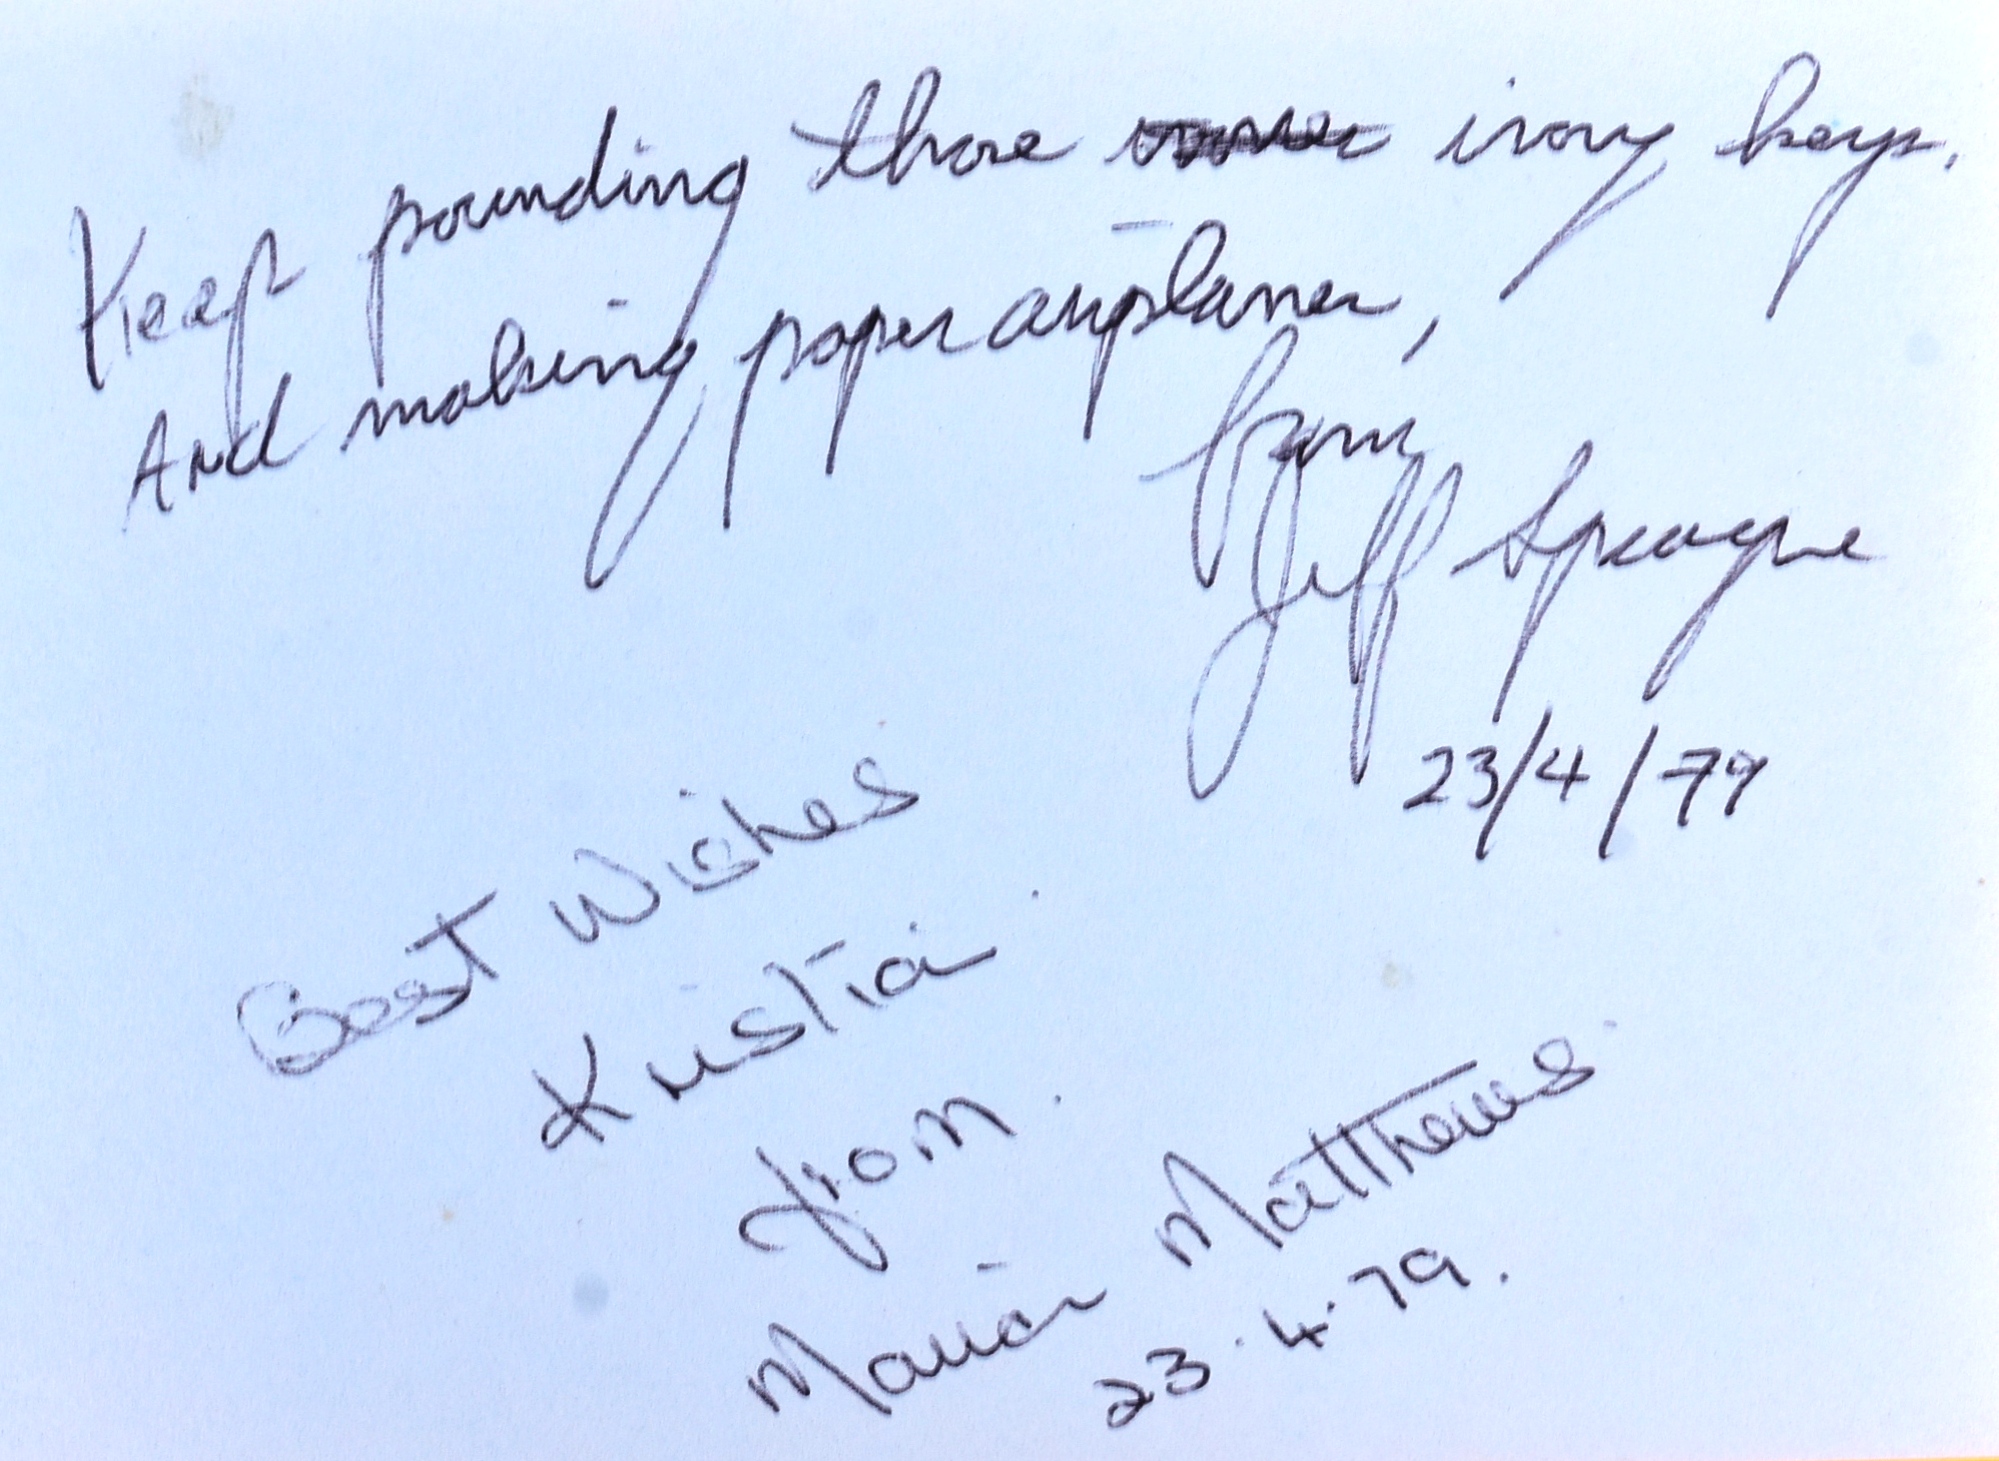 Keep pounding those ivory keys.
And making paper airplanes,
from
Jeff Sprague
23/4/79
Best Wishes
Kristia
from.
Maria Matthews.
23.4.79.